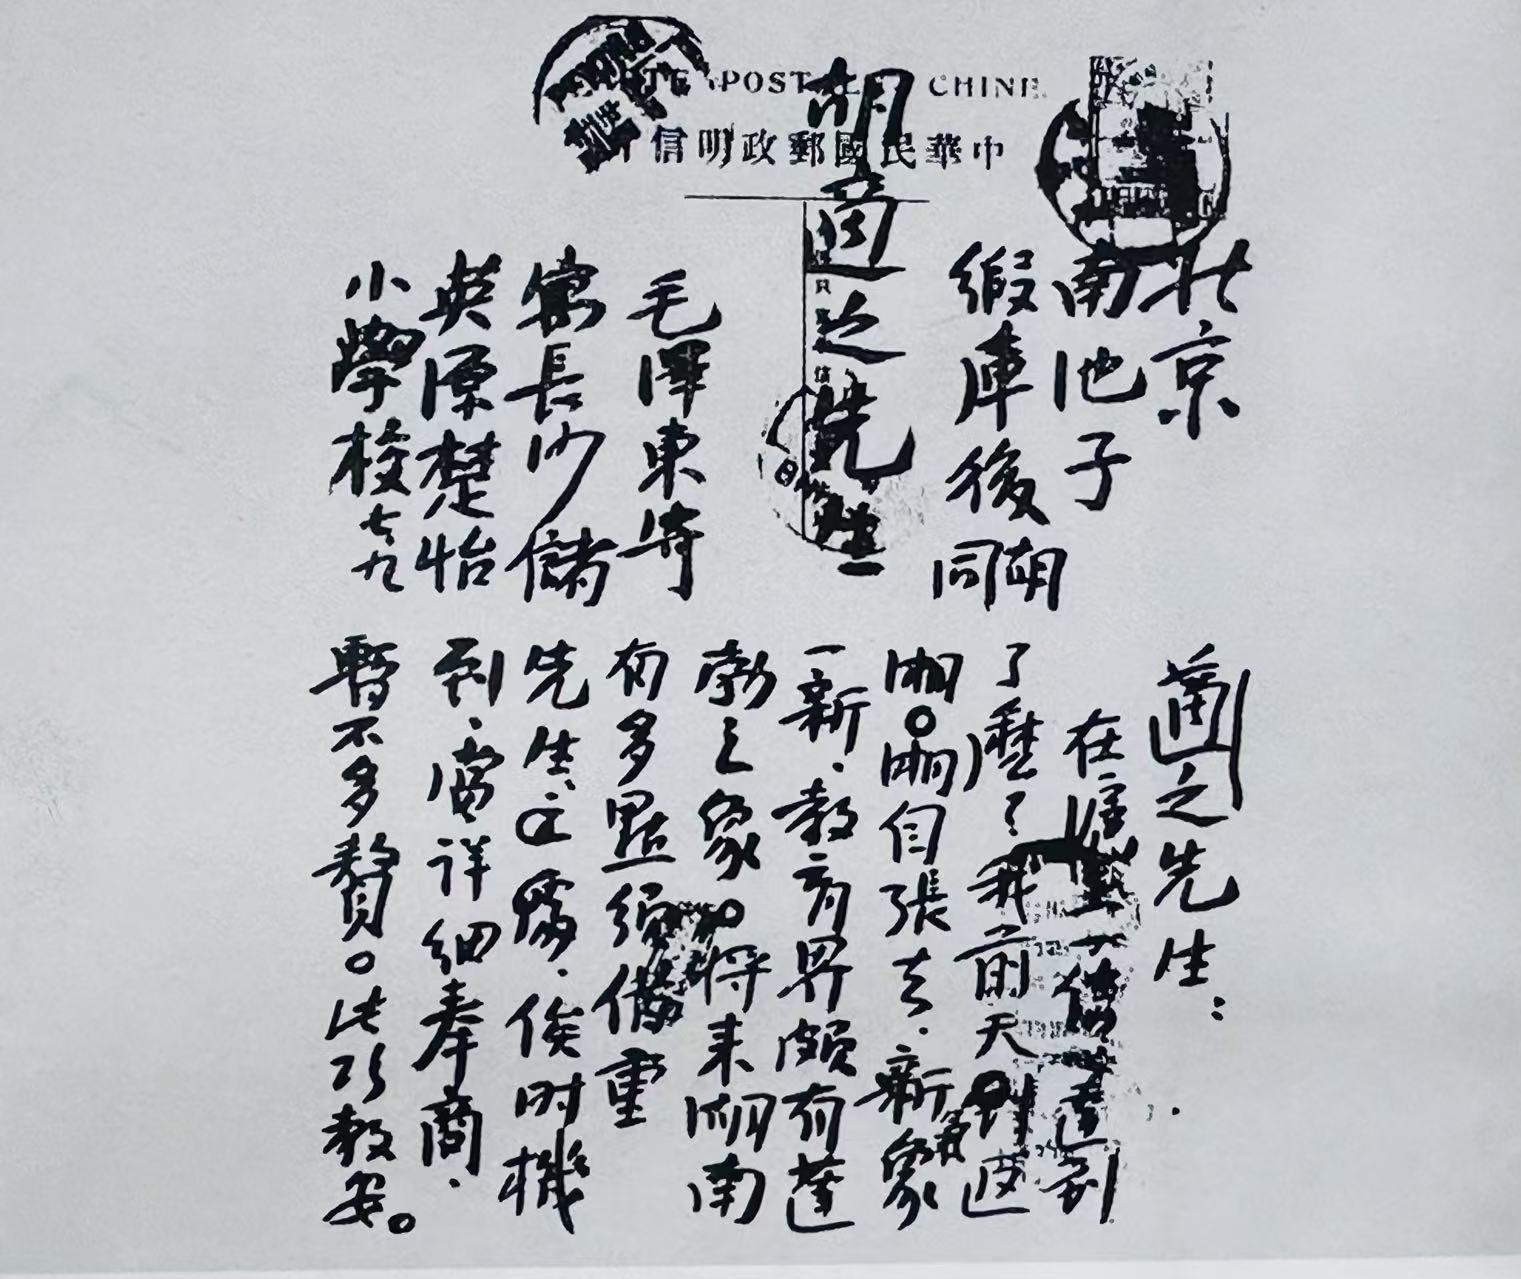 POST CHINE
中華民國郵政明信片
北京
南池子
緞庫後胡同
胡適之先生
毛澤東寄
寓長沙儲
英源楚怡
小學校 七、九
適之先生：
在滬上一信達到
了麼？我前天返
湘。湘自張去，新氣象
一新，教育界頗有蓬
勃之象。將來湖南
有多點須借重
先生之處，俟時機
到，當詳細奉商，
暫不多贅。此頌教安。